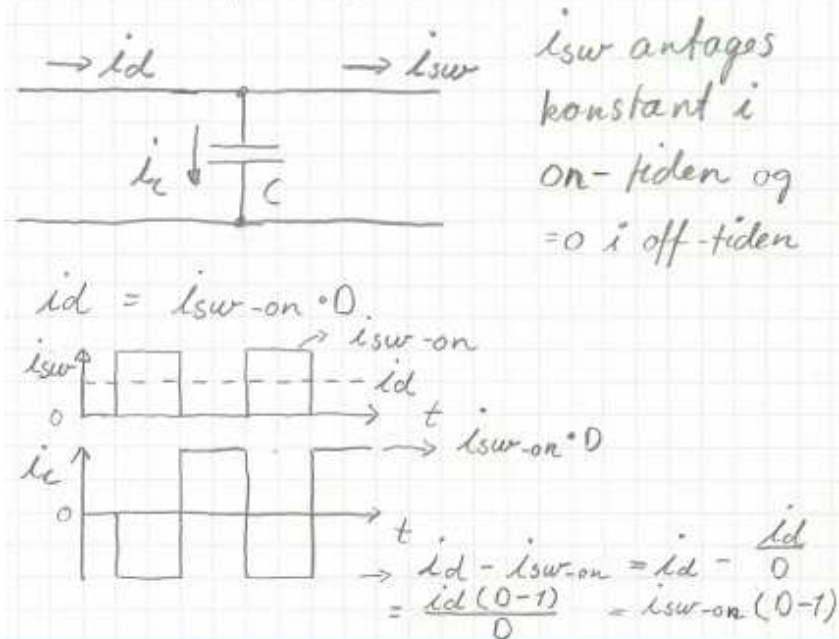 → id → isw
ic ↓ C
isw antages
konstant i
on-tiden og
=0 i off-tiden
id = isw-on · D
→ isw-on
isw
id
0 t
→ isw-on · D
ic
0
t
→ id - isw-on = id - id/D
= id(D-1)/D = isw-on(D-1)